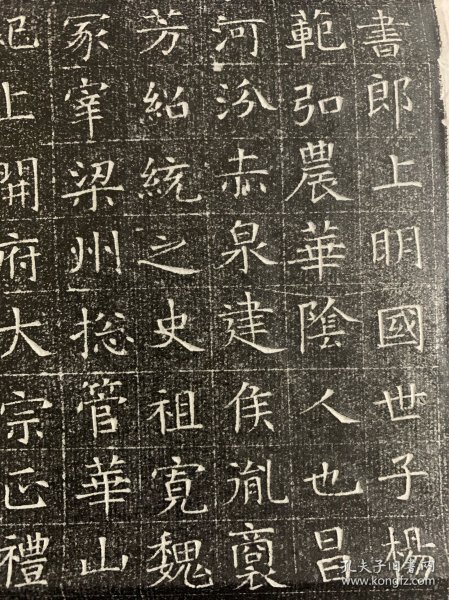 書郎上明國世子楊
範弘農華陰人也昌
河汾赤泉建侯胤裒
芳紹統之史祖寛魏
冢宰梁州揔管華山
上開府大宗正禮
孔夫子旧书网